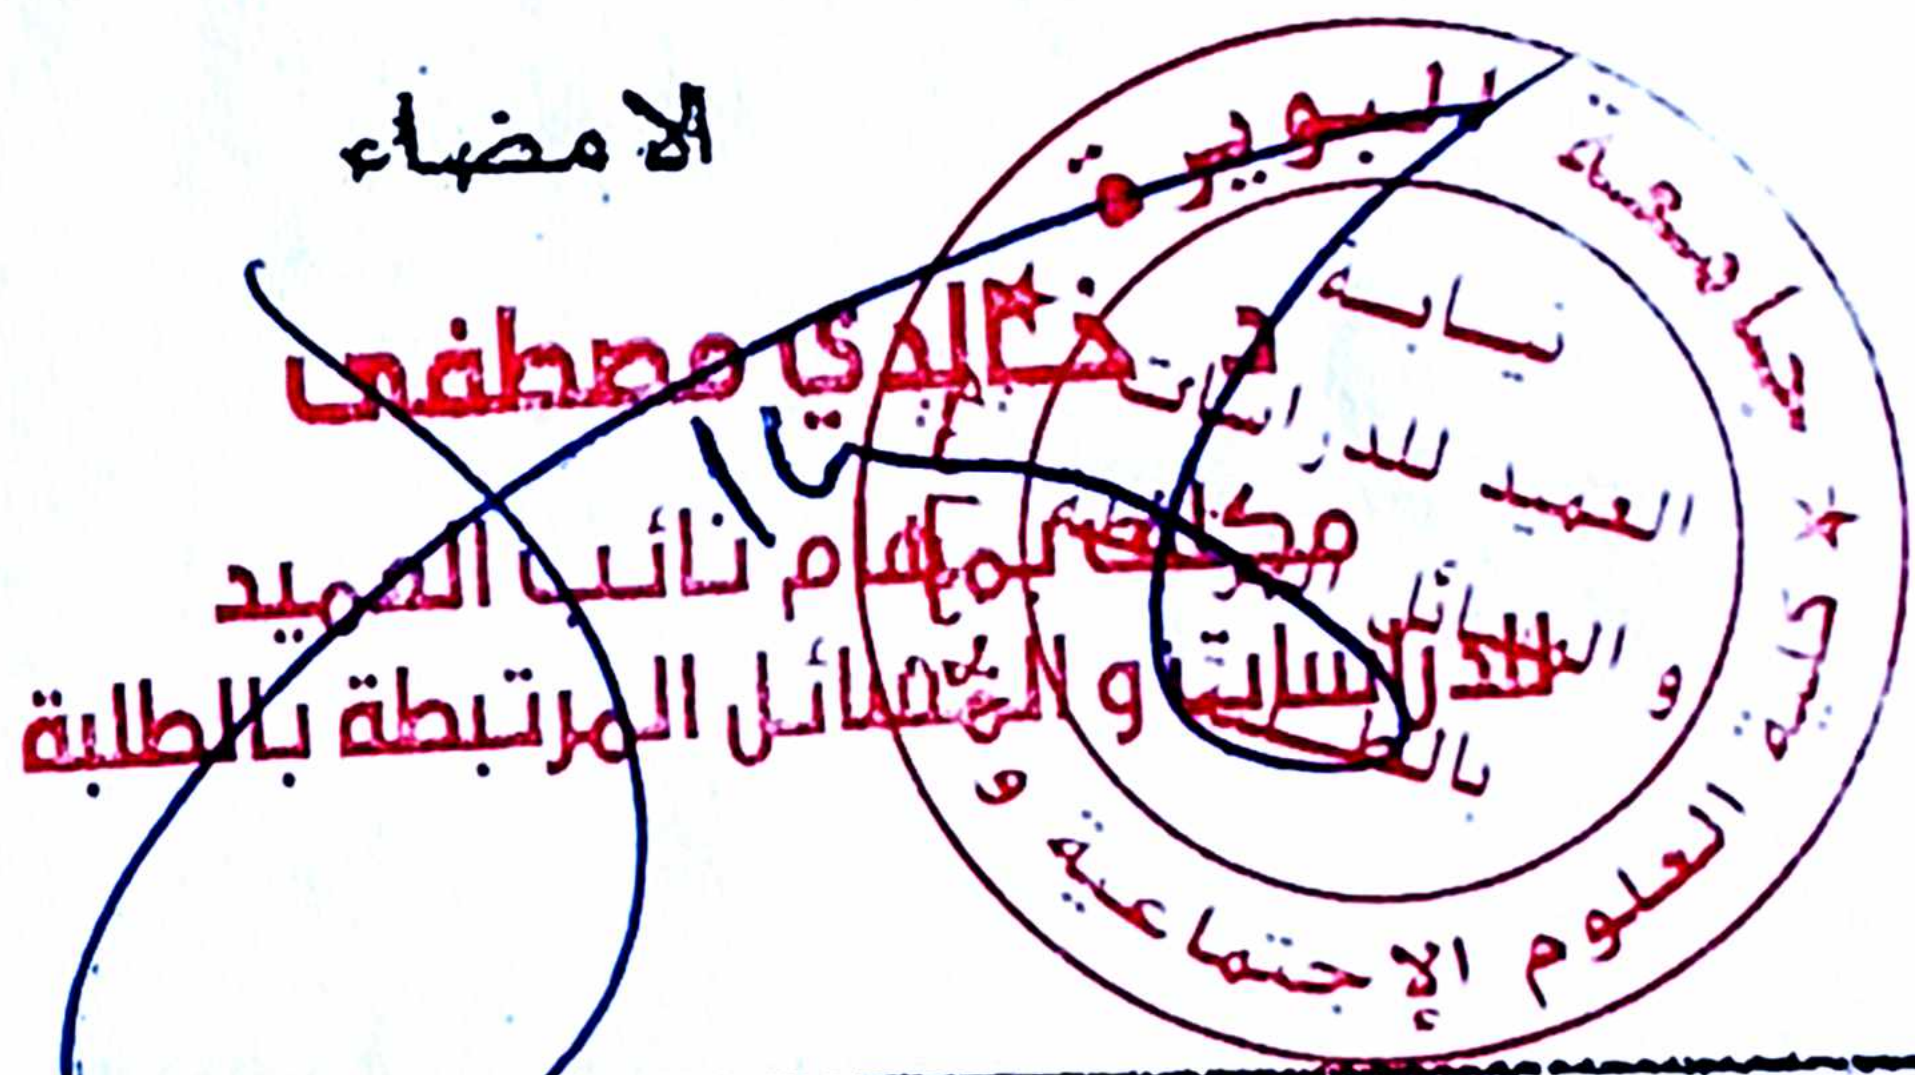 الامضاء
د. خالدي مصطفى
مكلف بمهام نائب العميد
للدراسات و المسائل المرتبطة بالطلبة
جامعة البويرة
كلية العلوم الإجتماعية و
نيابة
العميد للدراسات
و المسائل المرتبطة
بالطلبة